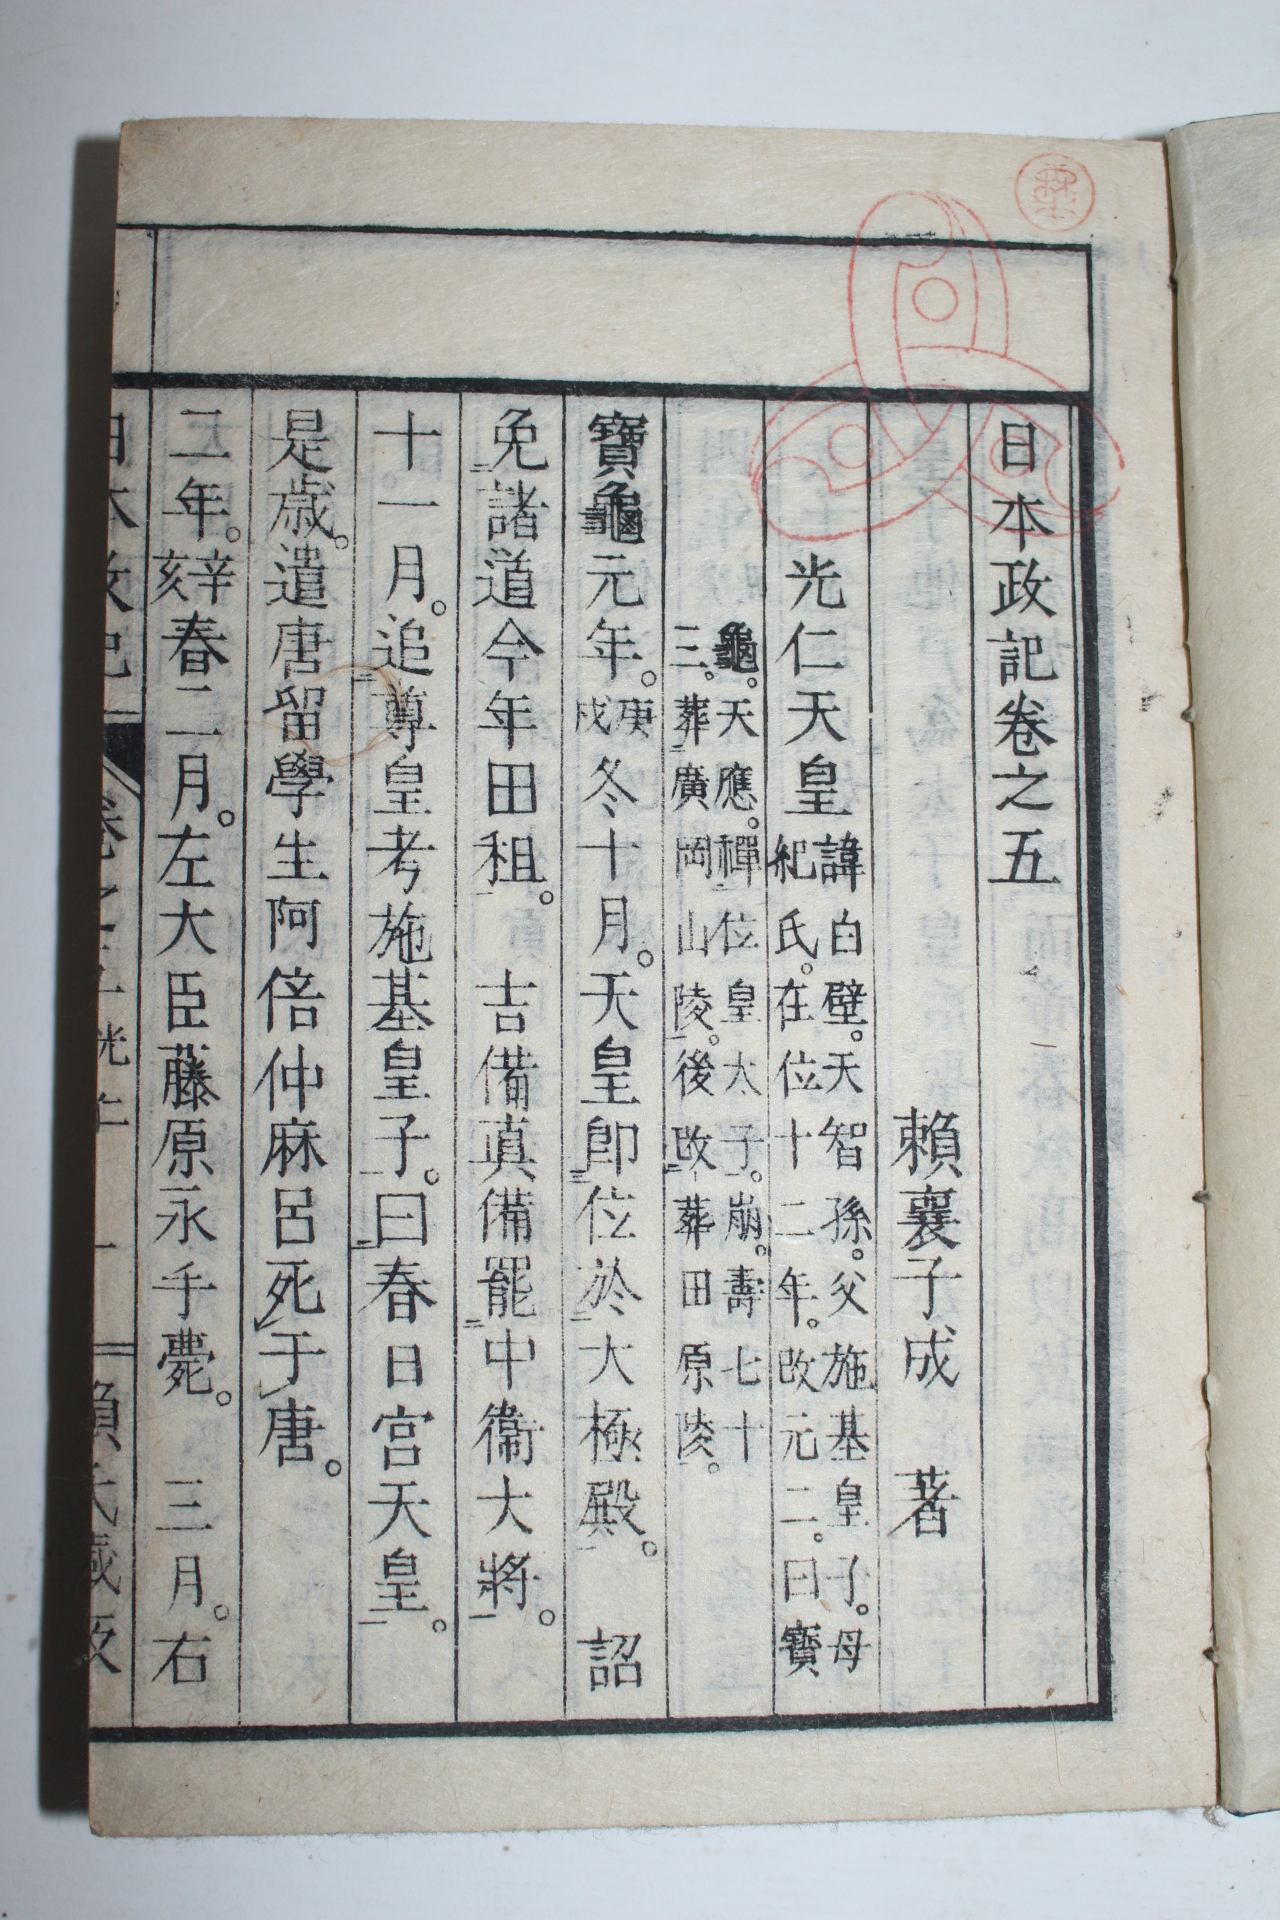 日本政記卷之五
賴襄子成 著
光仁天皇 諱白壁。天智孫。父施基皇子。母
紀氏。在位十二年。改元二。曰寶
龜。天應。禪位皇太子。崩。壽七十
三。葬廣岡山陵。後改葬田原陵。
寶龜元年。庚戌冬十月。天皇即位於大極殿。 詔
免諸道今年田租。 吉備真備罷中衞大將。
十一月。追尊皇考施基皇子。曰春日宮天皇。
是歲。遣唐留學生阿倍仲麻呂死于唐。
二年。辛亥春二月。左大臣藤原永手薨。 三月。右
日本政記
卷之五
賴氏藏